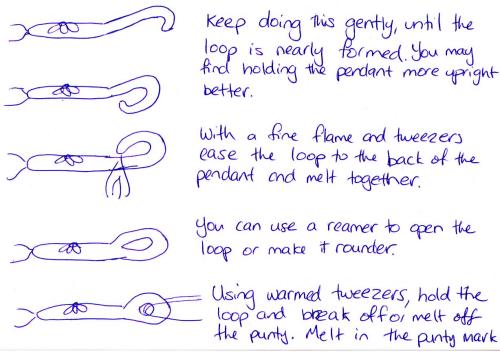 Keep doing this gently, until the
loop is nearly formed. You may
find holding the pendant more upright
better.
With a fine flame and tweezers
ease the loop to the back of the
pendant and melt together.
You can use a reamer to open the
loop or make it rounder.
Using warmed tweezers, hold the
loop and break off or melt off
the punty. Melt in the punty mark